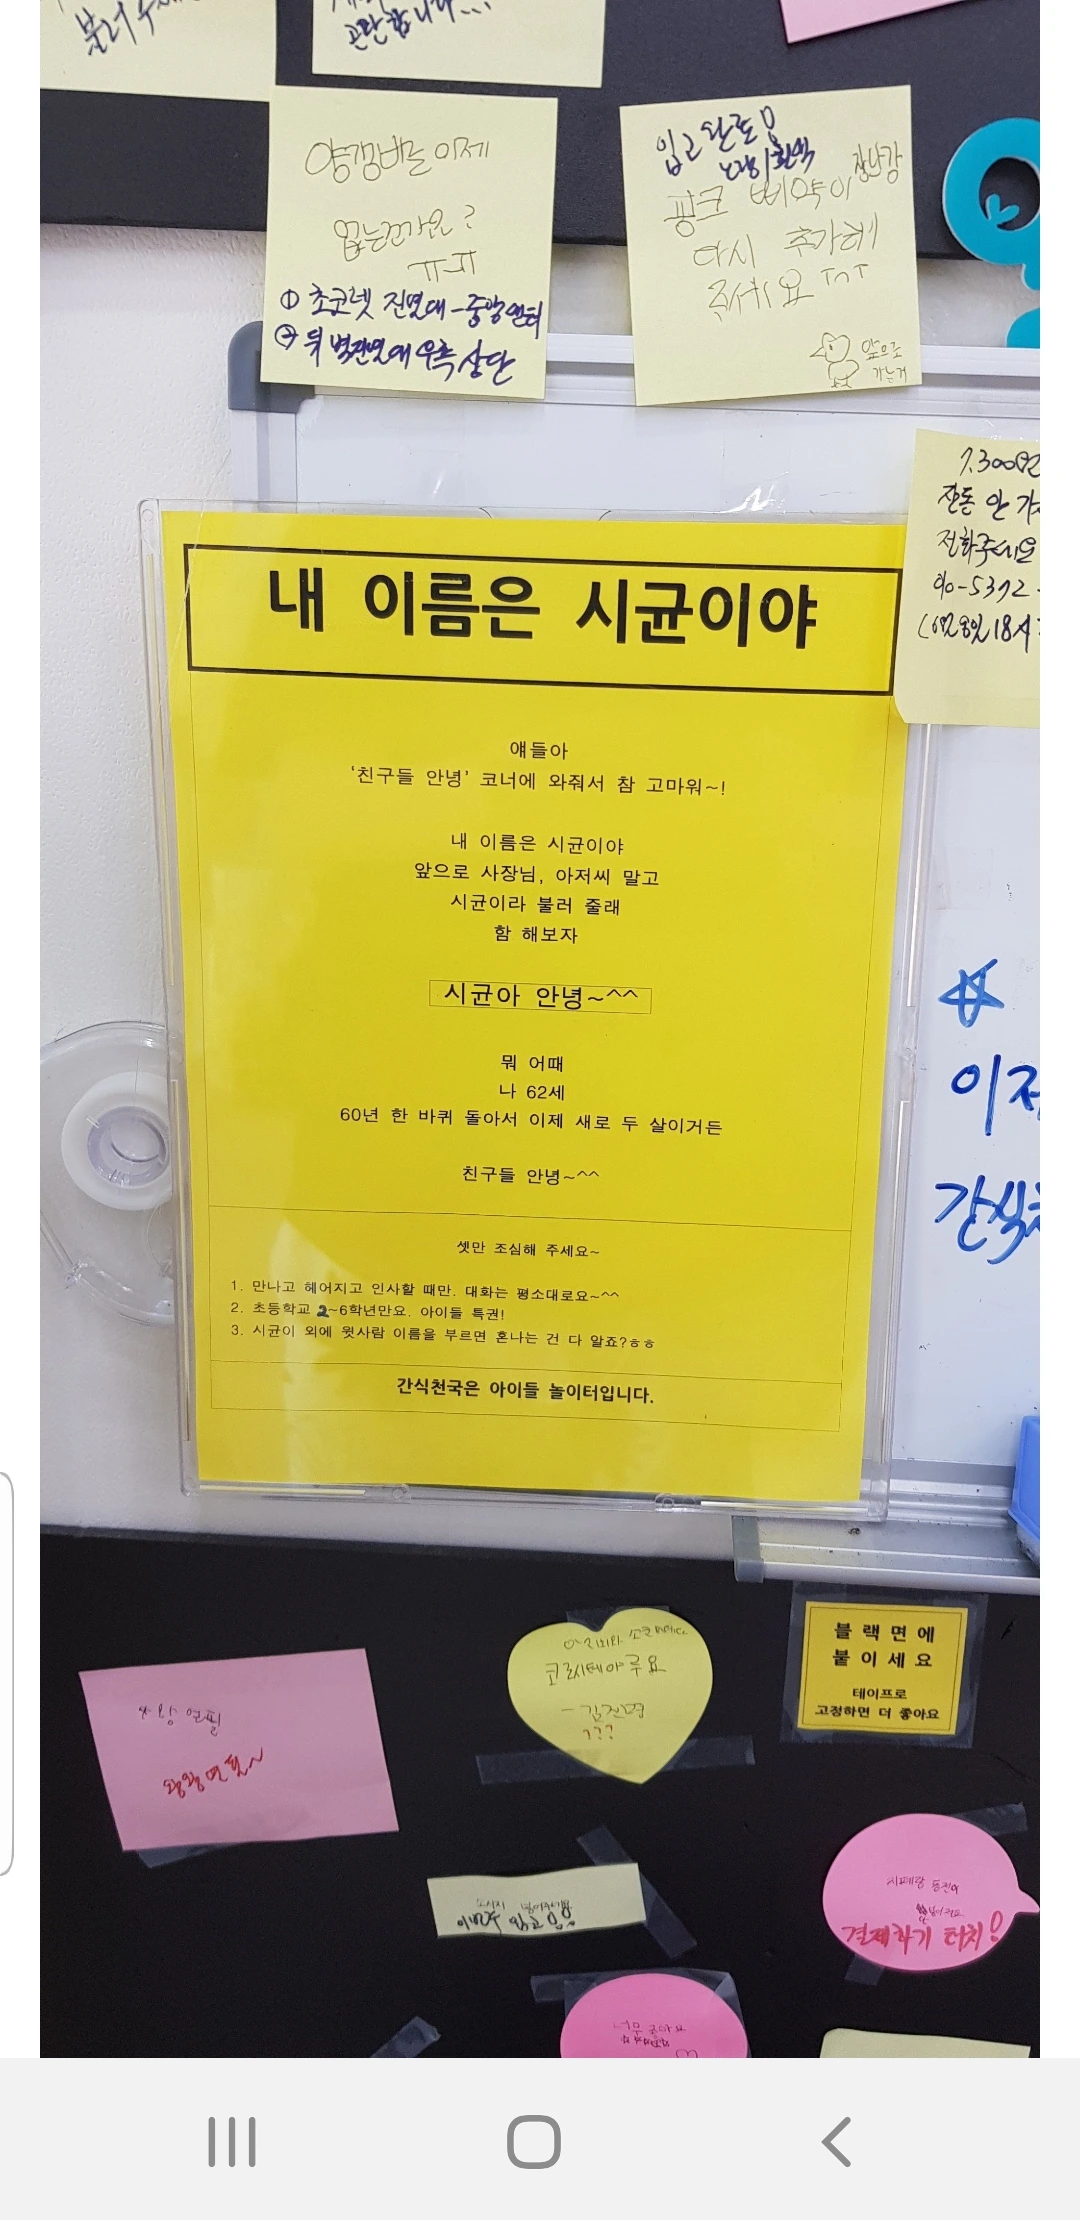 불러주세요
고민합니다...
양갱바는 이제
없는건가요?
ㅠㅠ
① 초코렛 진열대-중앙엔터
② 뒤 벽진열대 우측 상단
입고완료!
노랑이 흰색
핑크 삐약이 장난감
다시 추가해
주세요 ㅜㅜ
앞으로
가는거
1,300원
잔돈 안 가
전화주세요
010-5372-
18시
내 이름은 시균이야
얘들아
'친구들 안녕' 코너에 와줘서 참 고마워~!
내 이름은 시균이야
앞으로 사장님, 아저씨 말고
시균이라 불러 줄래
함 해보자
시균아 안녕~^^
뭐 어때
나 62세
60년 한 바퀴 돌아서 이제 새로 두 살이거든
친구들 안녕~^^
셋만 조심해 주세요~
1. 만나고 헤어지고 인사할 때만. 대화는 평소대로요~^^
2. 초등학교 2~6학년만요. 아이들 특권!
3. 시균이 외에 윗사람 이름을 부르면 혼나는 건 다 알죠?ㅎㅎ
간식천국은 아이들 놀이터입니다.
이제
간식천
블랙면에
붙이세요
테이프로
고정하면 더 좋아요
사랑 연필
왕왕연필~
???
소시지 넣어주세요
이번주 입고
결제하기 터치!
너무 좋아요